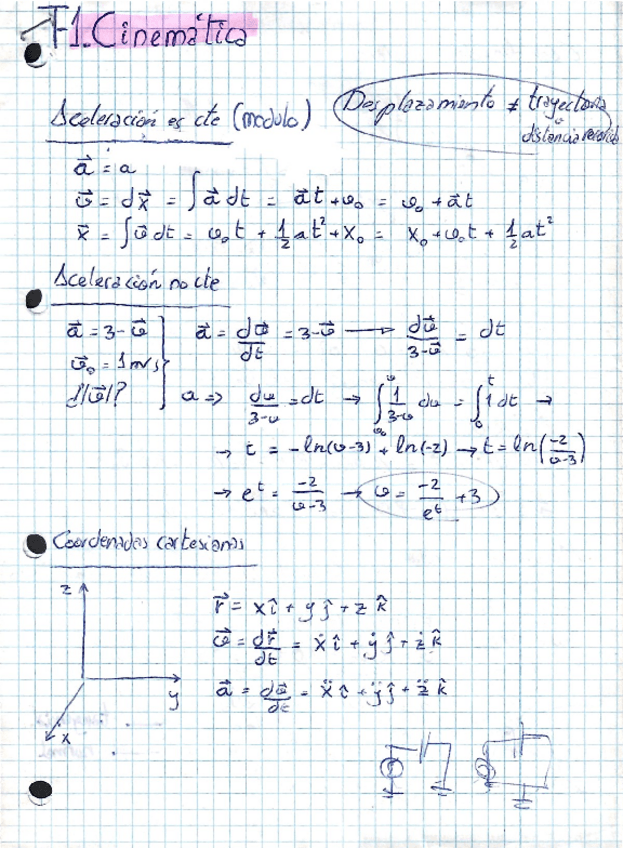 T-1. Cinemática
Aceleración es cte (modulo)
Desplazamiento ≠ trayectoria
o
distancia recorrida
a⃗ = a
v⃗ = dx⃗ = ∫ a⃗ dt = a⃗t + v₀ = v₀ + a⃗t
x⃗ = ∫ v⃗ dt = v₀t + 1/2 at² + x₀ = x₀ + v₀t + 1/2 at²
Aceleración no cte
a⃗ = 3-v⃗
v⃗₀ = 1 m/s
¿|v⃗|?
a⃗ = dv⃗/dt = 3-v⃗ → dv⃗/(3-v⃗) = dt
a ⇒ dv/(3-v) = dt → ∫_{v₀}^{v} 1/(3-v) dv = ∫_{0}^{t} 1 dt →
→ t = -ln(v-3) + ln(-2) → t = ln(-2/(v-3))
→ eᵗ = -2/(v-3) → v = -2/eᵗ + 3
Coordenadas cartesianas
z
y
x
r⃗ = x î + y ĵ + z k̂
v⃗ = dr⃗/dt = ẋ î + ẏ ĵ + ż k̂
a⃗ = dv⃗/dt = ẍ î + ÿ ĵ + z̈ k̂